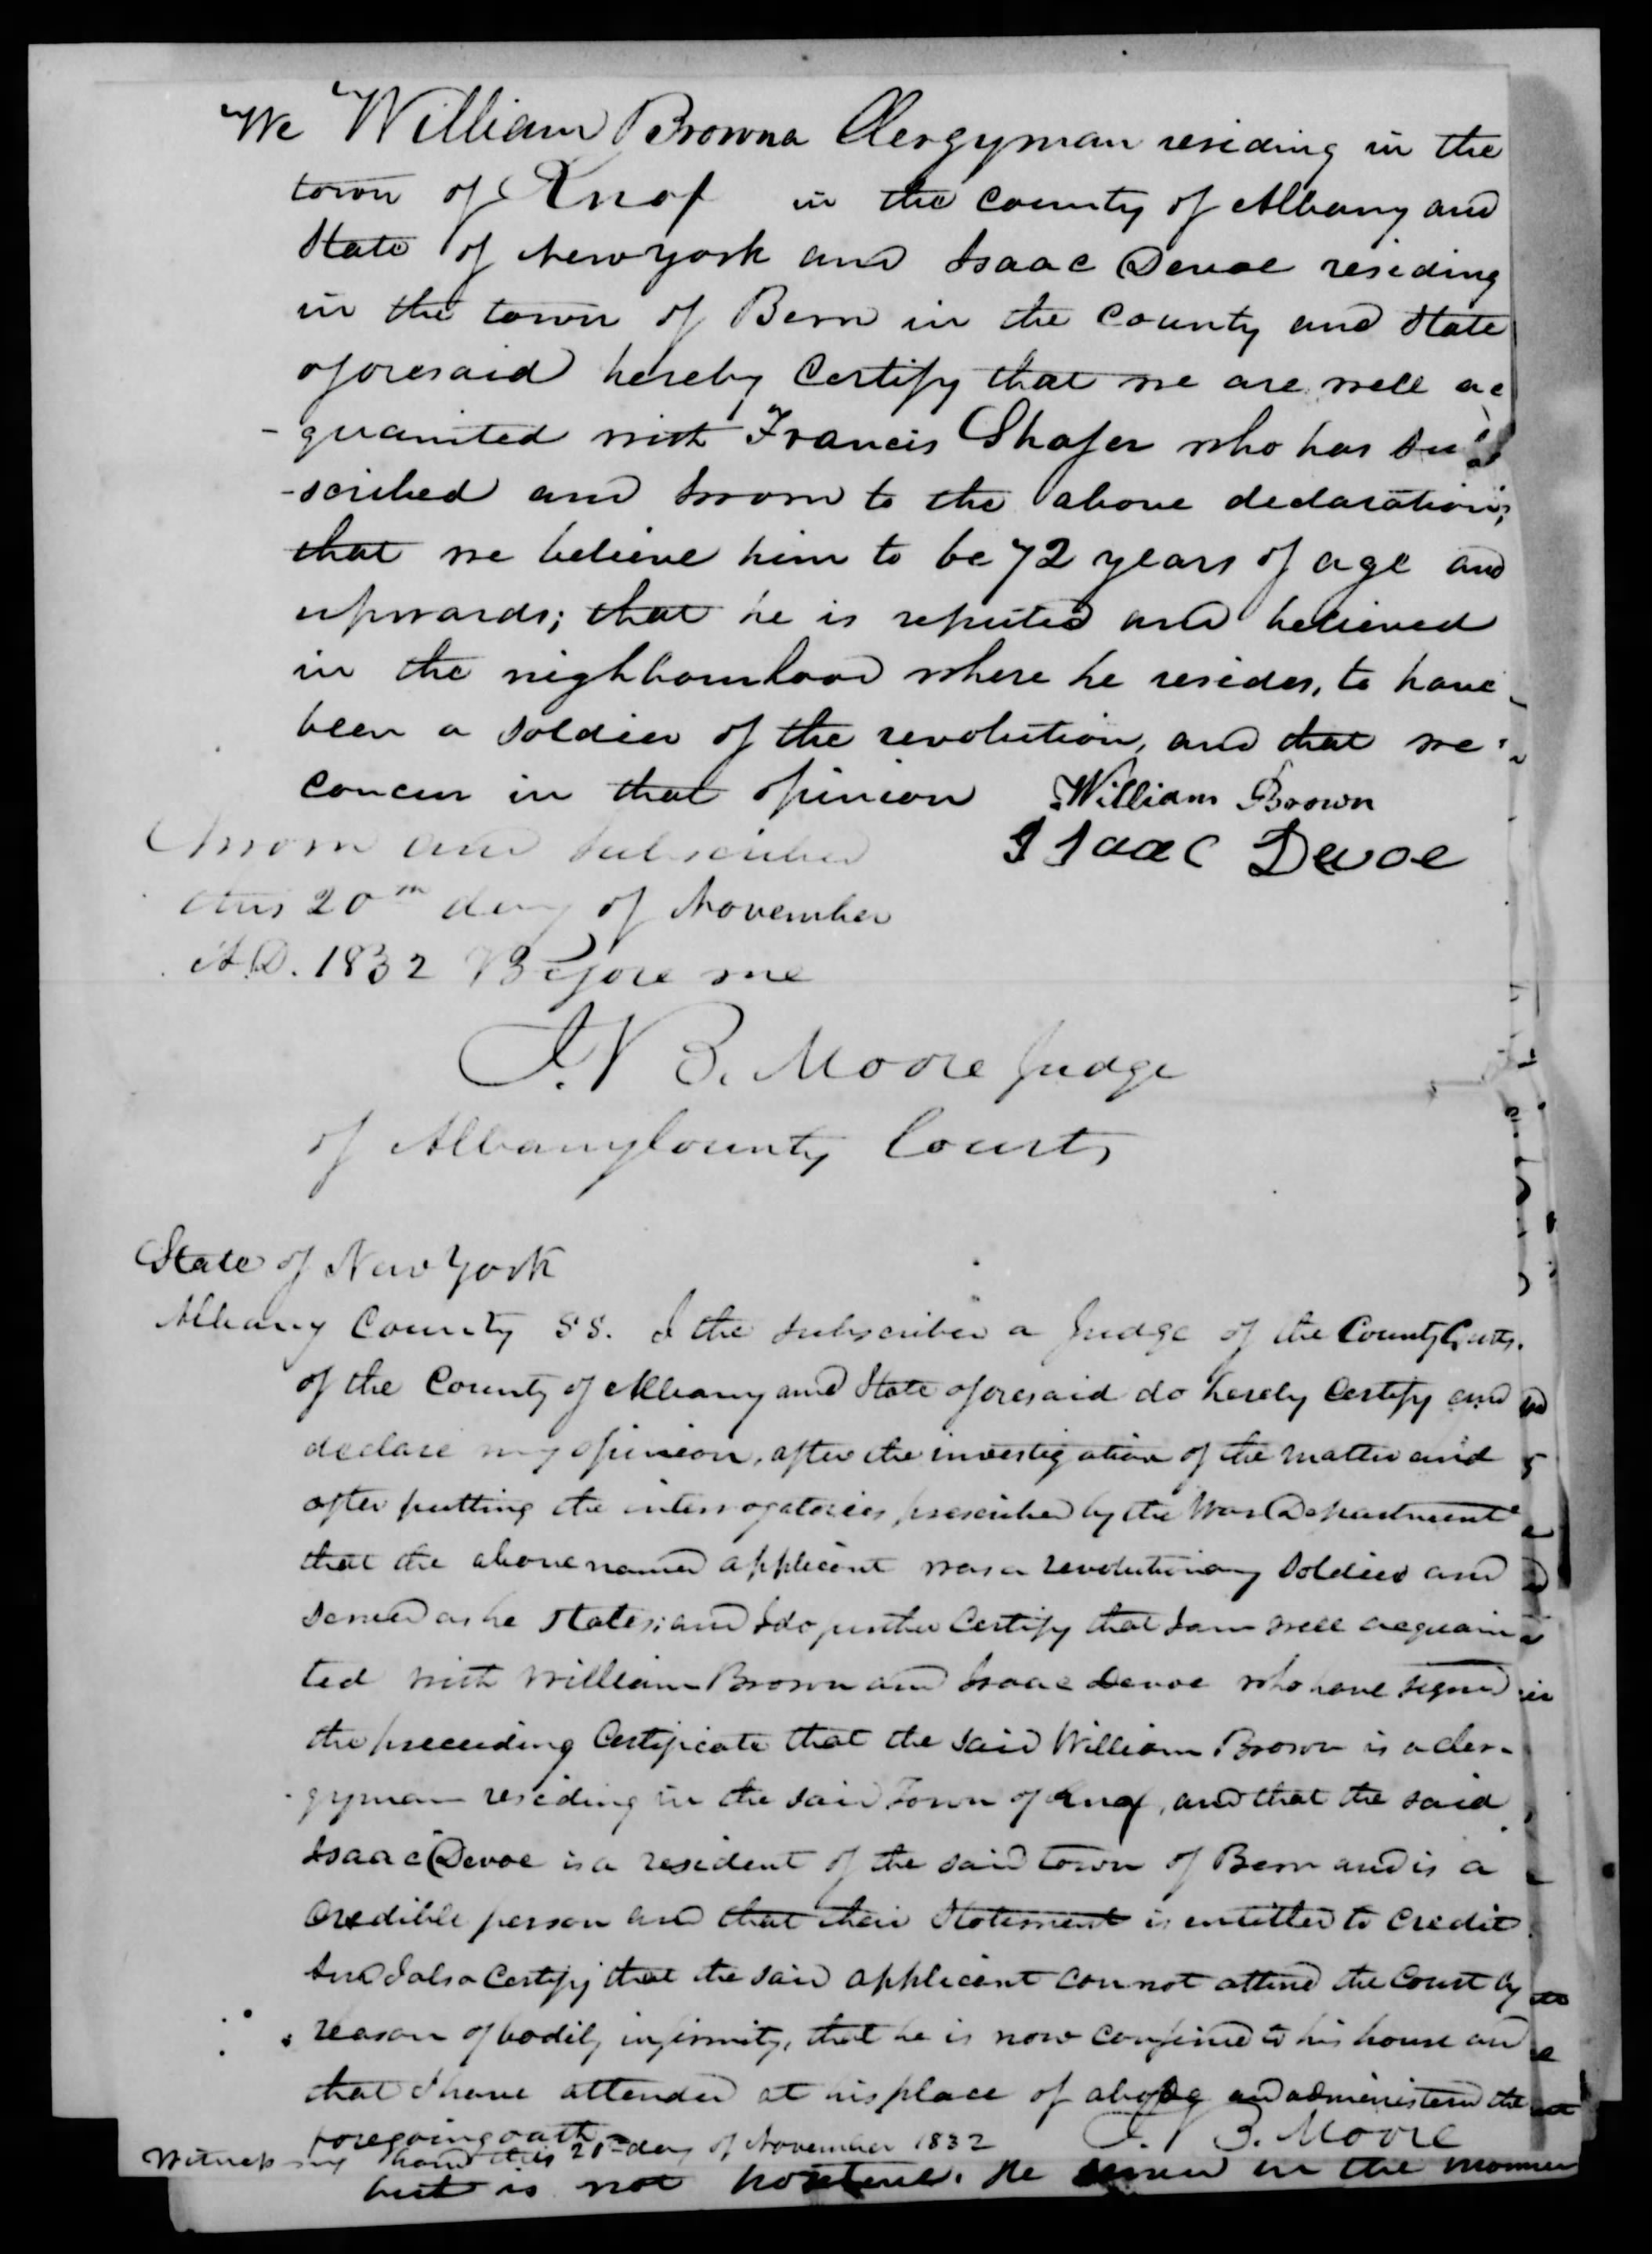 We William Browna Clergyman residing in the
town of Knox in the county of Albany and
State of New york and Isaac Devoe residing
in the town of Bern in the County and State
aforesaid hereby Certify that we are well ac
-quainted with Francis Shafer who has sub
-scribed and sworn to the above declaration;
that we believe him to be 72 years of age and
upwards; that he is reputed and believed
in the nighbourhood where he resides, to have
been a soldier of the revolution, and that we
concur in that opinion William Brown
Isaac Devoe
Sworn and Subscribed
this 20th day of November
A.D. 1832 Before me
J. V B. Moore Judge
of Albany County Courts
State of New York
Albany County SS. I the subscriber a Judge of the County Courts.
of the County of Albany and State aforesaid do hereby Certify and
declare my opinion, after the investigation of the matter and
after putting the interrogatories prescribed by the War Department
that the above named applicant was a revolutionary soldier and
served as he states; and I do further Certify that I am well acquain
ted with William Brown and Isaac Devoe who have signed
the preceeding Certificate that the said William Brown is a cler-
-gyman residing in the said Town of Knox, and that the said
Isaac Devoe is a resident of the said town of Bern and is a
Credible person and that their Statement is entitled to credit
And I also Certify that the said applicant can not attend the Court by
reason of bodily infirmity, that he is now confined to his house and
that I have attended at his place of abode and administered the
foregoing oath
Witness my hand this 20th day of November 1832 J. V B. Moore
but is not positive. He served in the manner